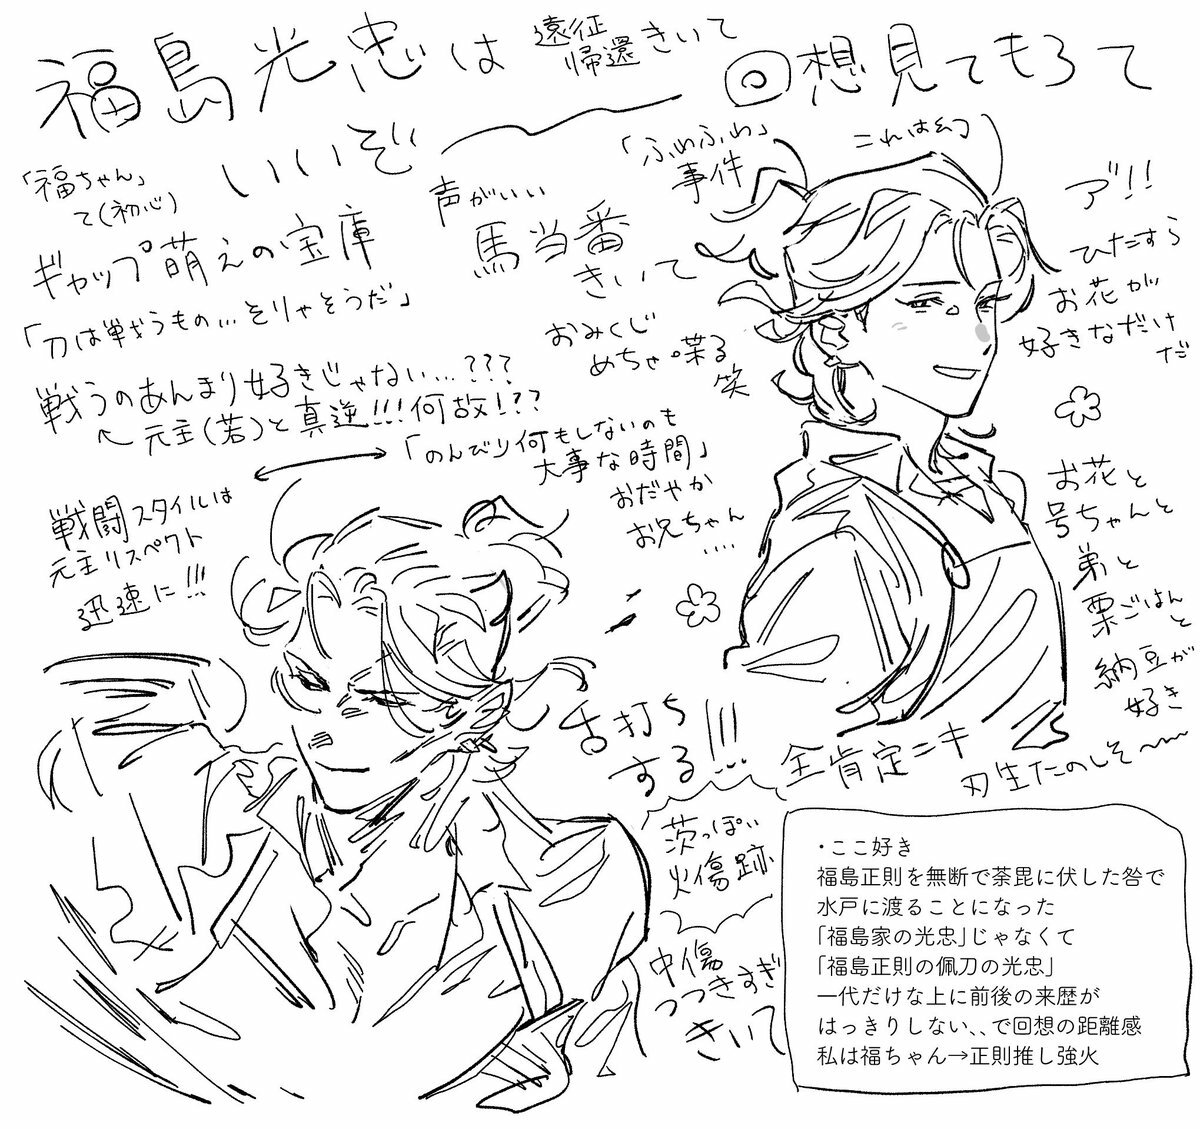 福島光忠は
いいぞ
遠征
帰還きいて
回想見てもろて
「福ちゃん」
て(初心)
ギャップ萌えの宝庫
「刀は戦うもの…そりゃそうだ」
戦うのあんまり好きじゃない…???
元主(若)と真逆!!!何故!??
声がいい
馬当番
きいて
「ふわふわ」
事件
これは幻
おみくじ
めちゃ喋る
笑
ア゛!!
ひたすら
お花が
好きなだけ
だ
「のんびり何もしないのも
大事な時間」
おだやか
お兄ちゃん
….
戦闘スタイルは
元主リスペクト
迅速に!!!
お花と
号ちゃんと
弟と
栗ごはんと
納豆が
好き
舌打ち
する!!!
全肯定ニキ
刃生たのしそ〜〜
茨っぽい
火傷跡
中傷
つつきすぎ
きいて
・ここ好き
福島正則を無断で荼毘に伏した咎で
水戸に渡ることになった
「福島家の光忠」じゃなくて
「福島正則の佩刀の光忠」
一代だけな上に前後の来歴が
はっきりしない、、で回想の距離感
私は福ちゃん→正則推し強火